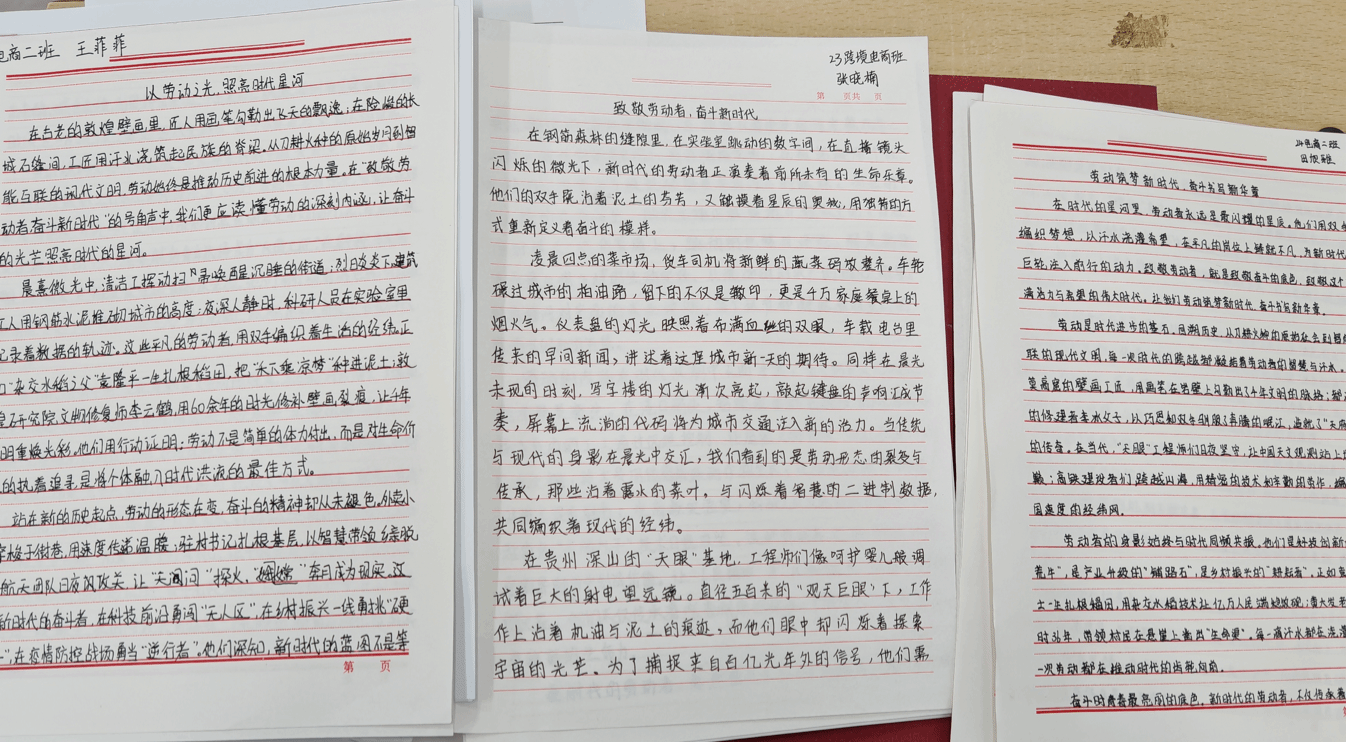 电商二班 王菲菲
以劳动之光,照亮时代星河
在古老的敦煌壁画里,匠人用画笔勾勒出飞天的飘逸;在险峻的长
城石缝间,工匠用汗水浇筑起民族的脊梁。从刀耕火种的原始岁月到智
能互联的现代文明,劳动始终是推动历史前进的根本力量。在"致敬劳
动者奋斗新时代"的号角声中,我们更应读懂劳动的深刻内涵,让奋斗
的光芒照亮时代的星河。
晨熹微光中,清洁工挥动扫帚唤醒沉睡的街道;烈日炎炎下,建筑
工人用钢筋水泥堆砌城市的高度;夜深人静时,科研人员在实验室里
记录着数据的轨迹。这些平凡的劳动者,用双手编织着生活的经纬。正
"杂交水稻之父"袁隆平一生扎根稻田,把"禾下乘凉梦"种进泥土;敦
煌研究院文物修复师李云鹤,用60余年的时光修补壁画裂痕,让千年
明重焕光彩。他们用行动证明:劳动不是简单的体力付出,而是对生命价
的执着追寻,是将个体融入时代洪流的最佳方式。
站在新的历史起点,劳动的形态在变,奋斗的精神却从未褪色。外卖小
梭于街巷,用速度传递温暖;驻村书记扎根基层,以智慧带领乡亲脱
航天团队日夜攻关,让"天问"探火、"嫦娥"奔月成为现实。这
新时代的奋斗者,在科技前沿勇闯"无人区",在乡村振兴一线勇挑"硬
",在疫情防控战场勇当"逆行者"。他们深知,新时代的蓝图不是等
第 页
23跨境电商班
张晓楠
第 页共 页
致敬劳动者,奋斗新时代
在钢筋森林的缝隙里,在实验室跳动的数字间,在直播镜头
闪烁的微光下,新时代的劳动者正演奏着前所未有的生命乐章。
他们的双手既沾着泥土的芬芳,又触摸着星辰的奥秘,用独特的方
式重新定义着奋斗的模样。
凌晨四点的菜市场,货车司机将新鲜的蔬菜码放整齐。车轮
碾过城市的柏油路,留下的不仅是辙印,更是千万家庭餐桌上的
烟火气。仪表盘的灯光映照着布满血丝的双眼,车载电台里
传来的早间新闻,讲述着这座城市新一天的期待。同样在晨光
未现的时刻,写字楼的灯光渐次亮起,敲起键盘的声响汇成节
奏,屏幕上流淌的代码将为城市交通注入新的活力。当传统
与现代的身影在晨光中交汇,我们看到的是劳动形态的裂变与
传承,那些沾着露水的菜叶。与闪烁着智慧的二进制数据,
共同编织着现代的经纬。
在贵州深山的"天眼"基地,工程师们像呵护婴儿般调
试着巨大的射电望远镜。直径五百米的"观天巨眼"下,工作
作上沾着机油与泥土的痕迹,而他们眼中却闪烁着探索
宇宙的光芒。为了捕捉来自百亿光年外的信号,他们需
电商二班
劳动筑梦新时代,奋斗书写新华章
在时代的星河里,劳动者永远是最闪耀的星辰。他们用双
编织梦想,以汗水浇灌希望,在平凡的岗位上铸就不凡,为新时代
巨轮注入前行的动力。致敬劳动者,就是致敬奋斗的底色,致敬这个
满活力与希望的伟大时代。让我们劳动筑梦新时代,奋斗书写新华章。
劳动是时代进步的基石。回溯历史,从刀耕火种的原始社会到
联的现代文明,每一次时代的跨越都凝结着劳动者的智慧与汗水。
莫高窟的壁画工匠,用画笔在岩壁上勾勒出千年文明的脉络;都
的修建者李冰父子,以巧思和双手驯服了奔腾的岷江,造就了"天府
的传奇。在当代,"天眼"工程师们日夜坚守,让中国天文观测站上
巅;高铁建设者们跨越山海,用精密的技术和辛勤的劳作,编
国速度的经纬网。
劳动者的身影始终与时代同频共振。他们是科技创新
荒牛",是产业升级的"铺路石",是乡村振兴的"耕耘者"。正如
士一生扎根稻田,用杂交水稻技术让亿万人民端稳饭碗;黄大发
时36年,带领村民在悬崖上凿出"生命渠"。每一滴汗水都在浇灌
一次劳动都在推动时代的齿轮向前。
奋斗是青春最亮丽的底色。新时代的劳动者,不仅传承着